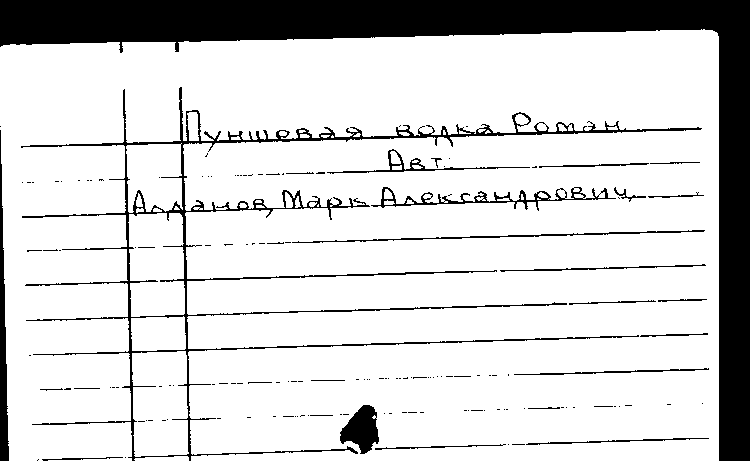 Пуншевая водка Роман
Авт.
Алданов, Марк Александрович